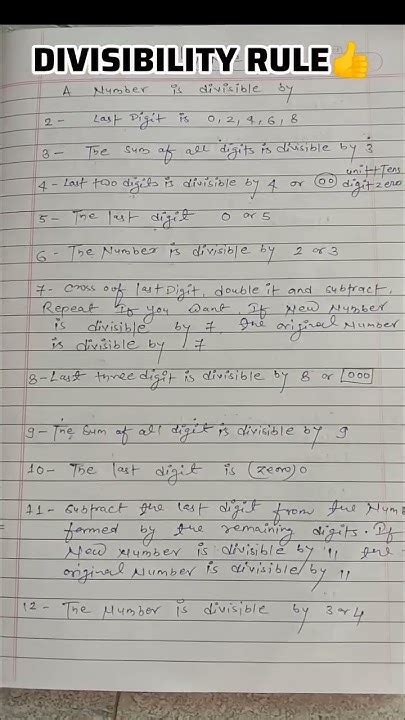 DIVISIBILITY RULE👍
A Number is divisible by
2- Last Digit is 0, 2, 4, 6, 8
3- The Sum of all digits is divisible by 3
4- Last two digits is divisible by 4 or 00 unit+Tens digit zero
5- The last digit 0 or 5
6- The Number is divisible by 2 or 3
7- Cross oof last Digit, double it and subtract.
Repeat If you want. If New Number
is divisible by 7, the original Number
is divisible by 7
8- Last three digit is divisible by 8 or 000
9- The Sum of all digit is divisible by 9
10- The last digit is (zero) 0
11- Subtract the last digit from the Num
formed by the remaining digits. If
New Number is divisible by 11 the
original Number is divisible by 11
12- The Number is divisible by 3 or 4